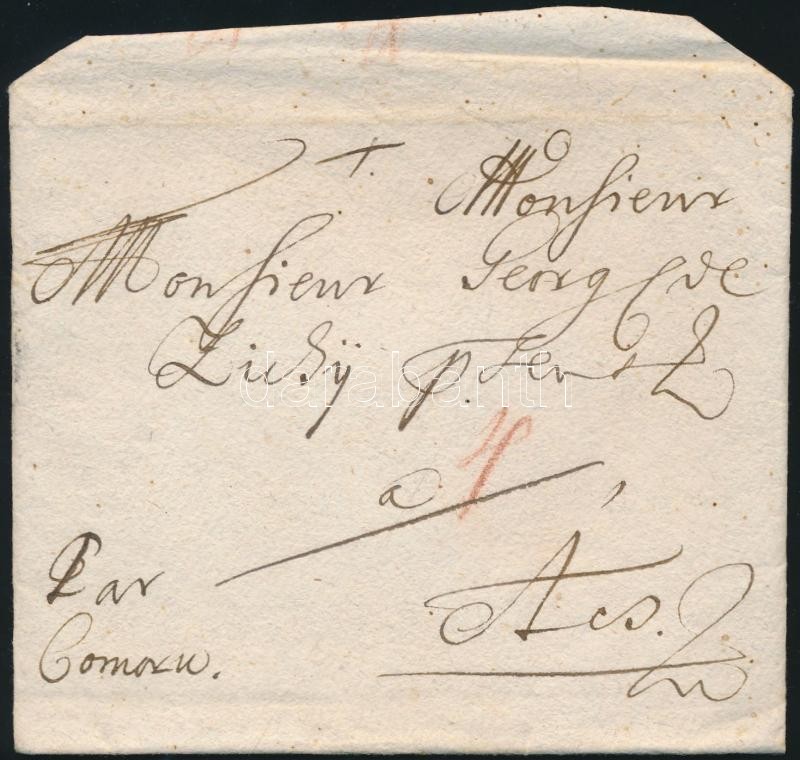 Monsieur
Monsieur Georg de
Zichÿ p.
a 4
Àcs.
Par
Comorn.
darabanth